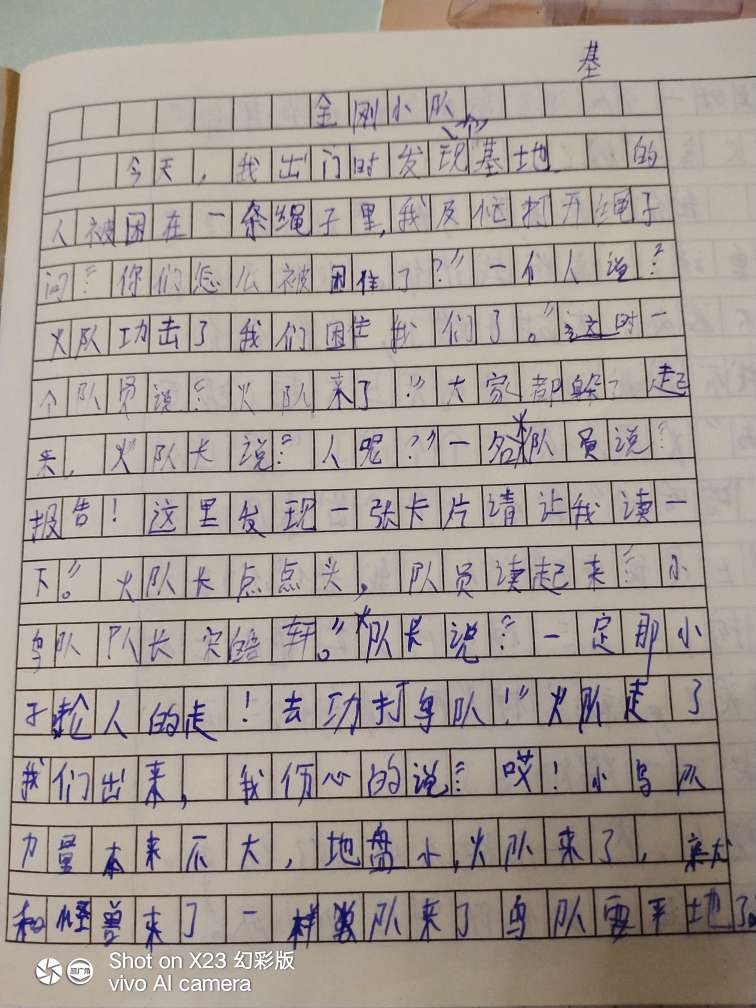 基
金刚小队
今天，我出门时发现个基地的
人被困在一条绳子里，我反忙打开绳子
问：“你们怎么被困住了？”一个人说：“
火队功击了我们困住我们了。”这时一
个队员说：“火队来了”大家都躲了起
来，火队长说：“人呢？”一名火队员说：“
报告！这里发现一张卡片请让我读一
下。”火队长点点头，队员读起来：“小
鸟队队长宋皓轩。”火队长说：“一定那小
子抢人的走！去功打鸟队！”火队走了
我们出来，我伤心的说：“哎！小鸟队
力量本来不大，地盘小，火队来了，
和怪兽来了一样队来了鸟队要平地了
Shot on X23 幻彩版
vivo AI camera